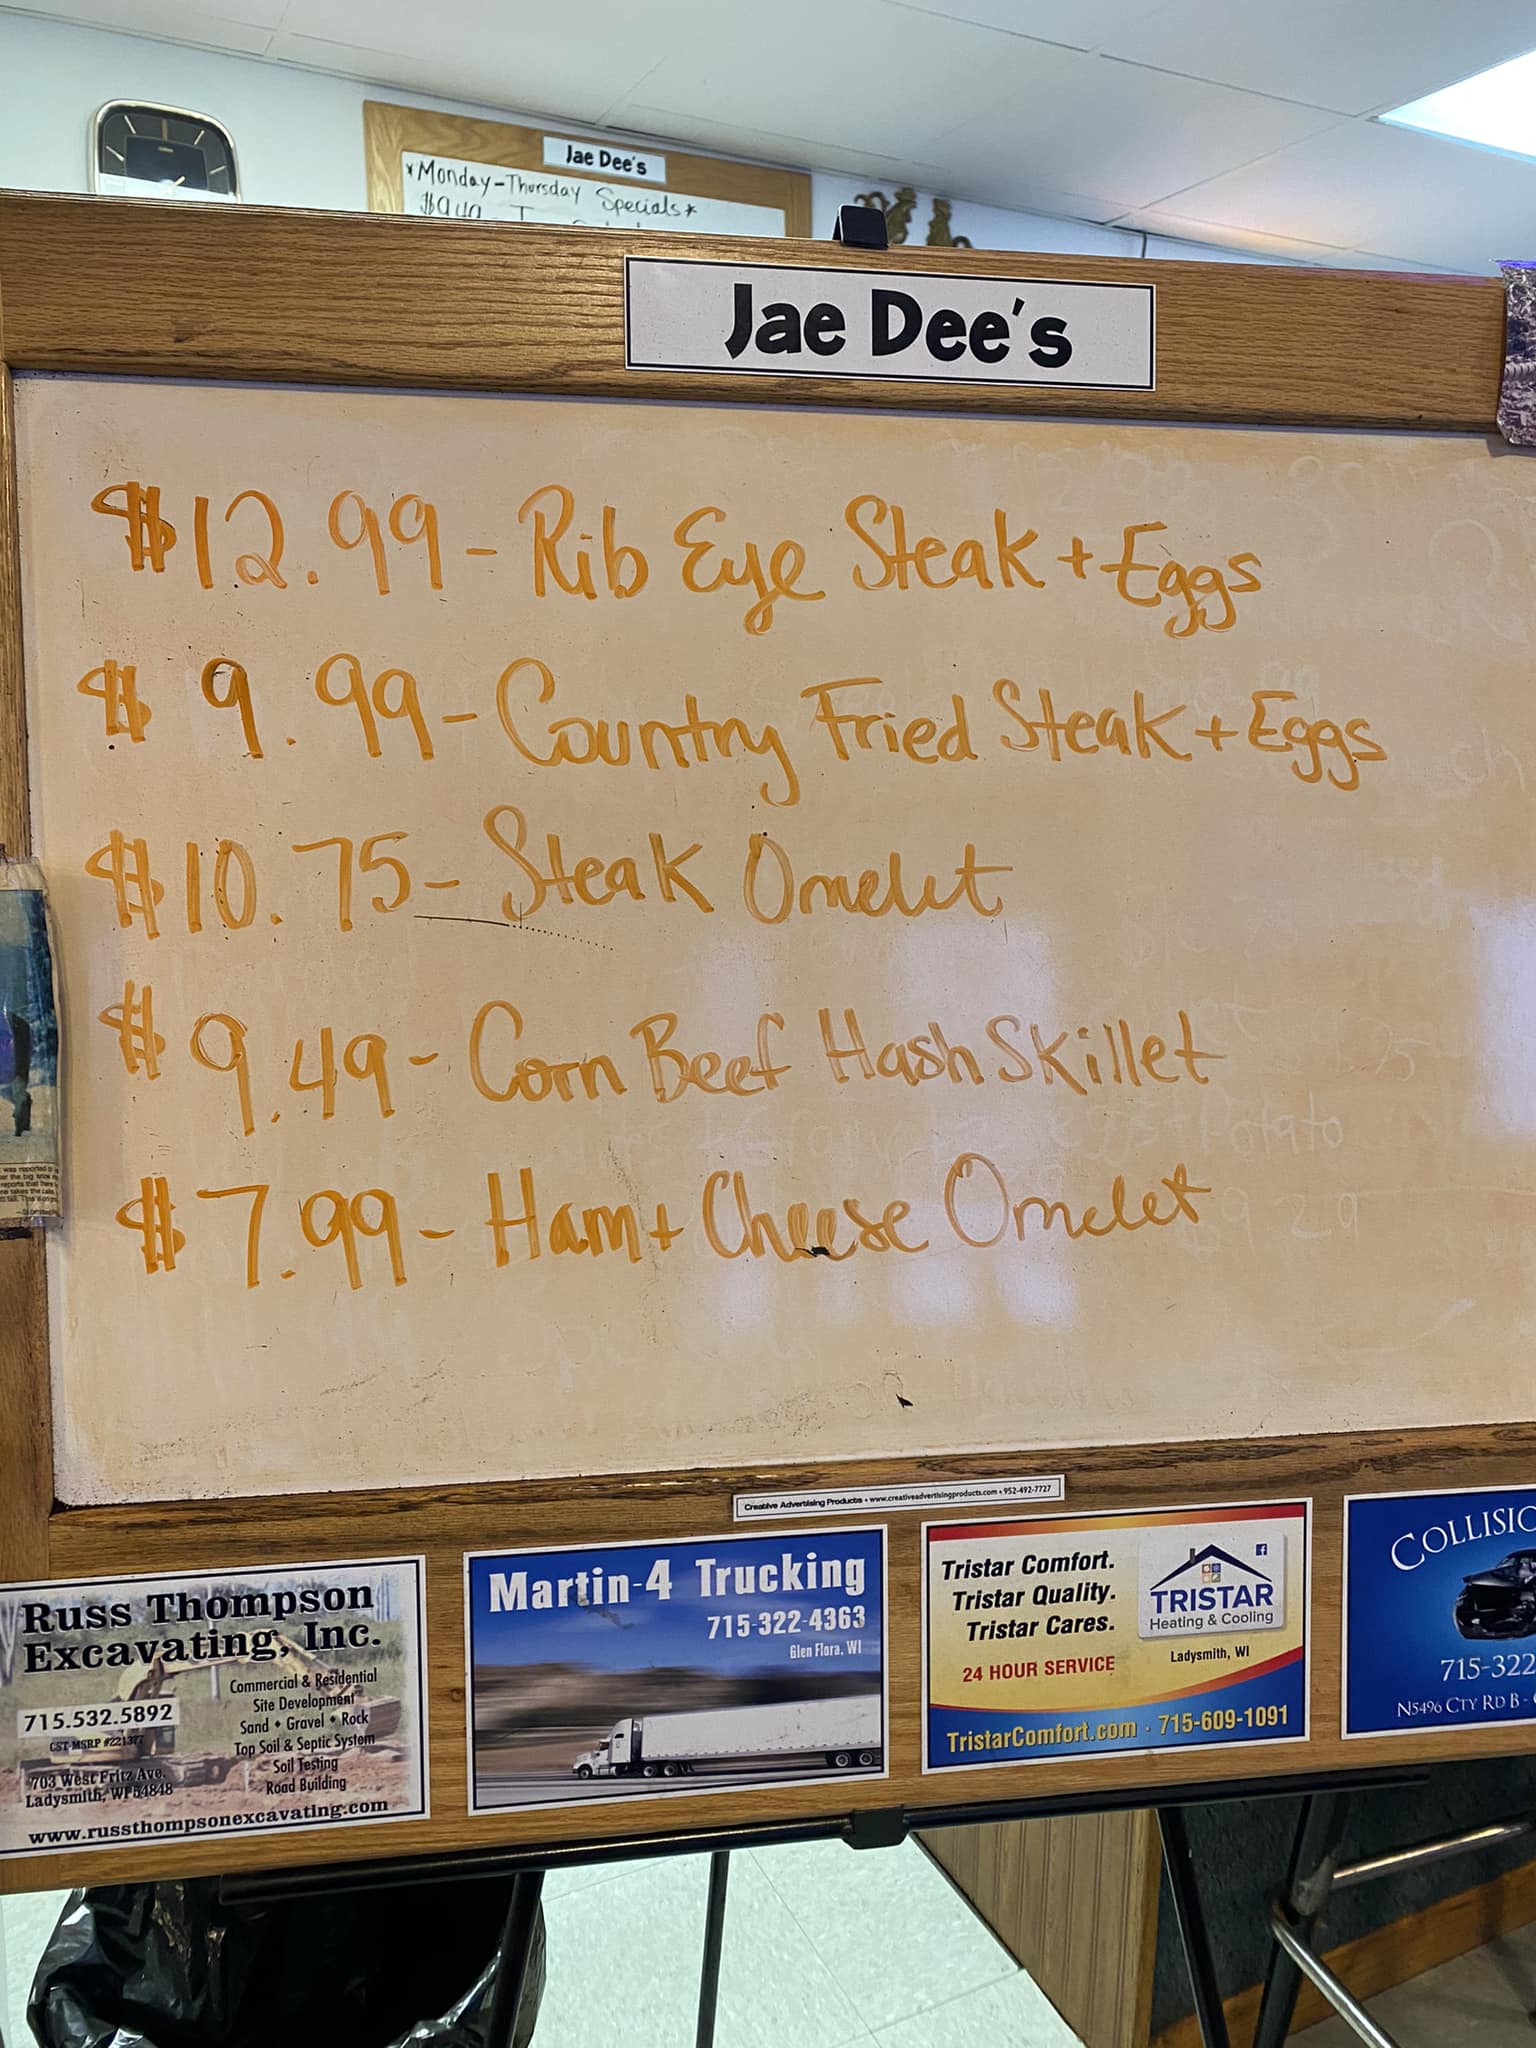 Jae Dee's
*Monday-Thursday Specials*
Jae Dee's
$12.99 - Rib Eye Steak + Eggs
$9.99 - Country Fried Steak + Eggs
$10.75 - Steak Omelet
$9.49 - Corn Beef Hash Skillet
$7.99 - Ham + Cheese Omelet
Creative Advertising Products • www.creativeadvertisingproducts.com • 952-492-7727
Russ Thompson
Excavating, Inc.
715.532.5892
CST-MSRP #221377
703 West Fritz Ave.
Ladysmith, WI 54848
Commercial & Residential
Site Development
Sand • Gravel • Rock
Top Soil & Septic System
Soil Testing
Road Building
www.russthompsonexcavating.com
Martin-4 Trucking
715-322-4363
Glen Flora, WI
Tristar Comfort.
Tristar Quality.
Tristar Cares.
24 HOUR SERVICE
TRISTAR
Heating & Cooling
Ladysmith, WI
TristarComfort.com · 715-609-1091
COLLISIO
715-322
N5496 CTY RD B -